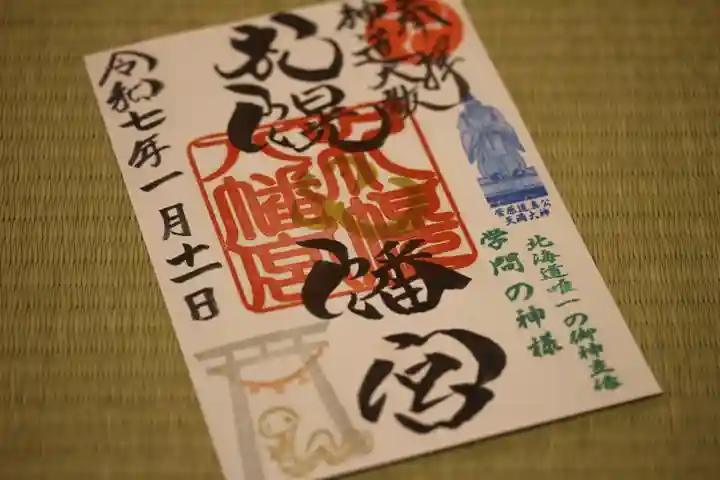 奉拝
神道大教
札幌八幡宮
令和七年一月十一日
菅原道真公
天満大神
北海道唯一の御神立像
学問の神様